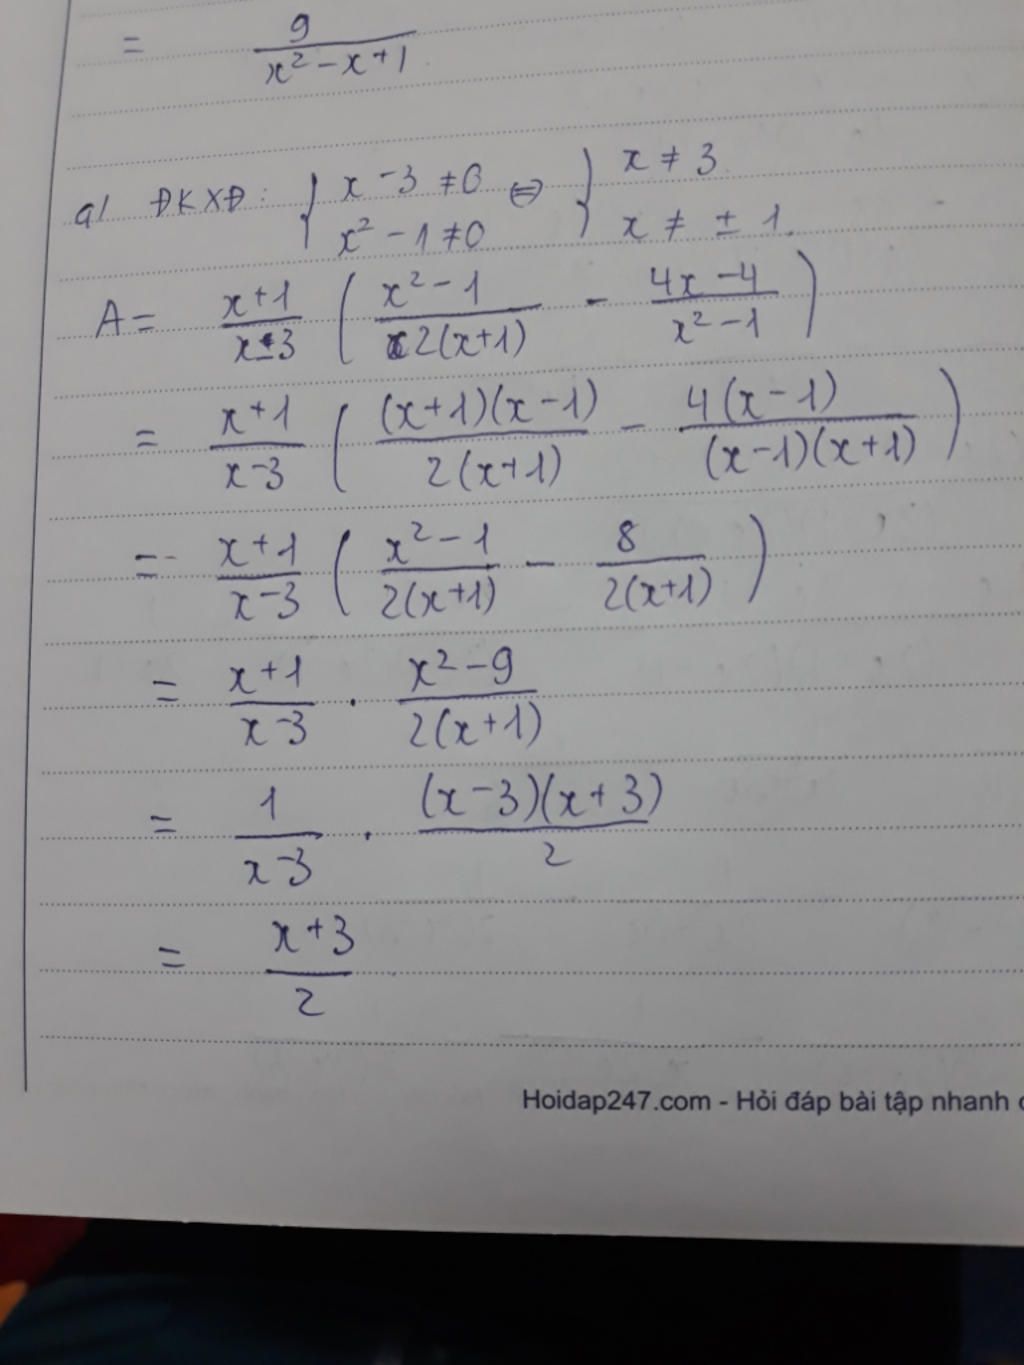 = 9/(x² - x + 1)
a/ ĐKXĐ: { x - 3 ≠ 0 ⇔ { x ≠ 3
x² - 1 ≠ 0 x ≠ ± 1.
A = (x+1)/(x-3) ( (x² - 1)/(2(x+1)) - (4x - 4)/(x² - 1) )
= (x+1)/(x-3) ( (x+1)(x-1)/(2(x+1)) - 4(x-1)/((x-1)(x+1)) )
= (x+1)/(x-3) ( (x² - 1)/(2(x+1)) - 8/(2(x+1)) )
= (x+1)/(x-3) . (x² - 9)/(2(x+1))
= 1/(x-3) . (x-3)(x+3)/2
= (x+3)/2
Hoidap247.com - Hỏi đáp bài tập nhanh